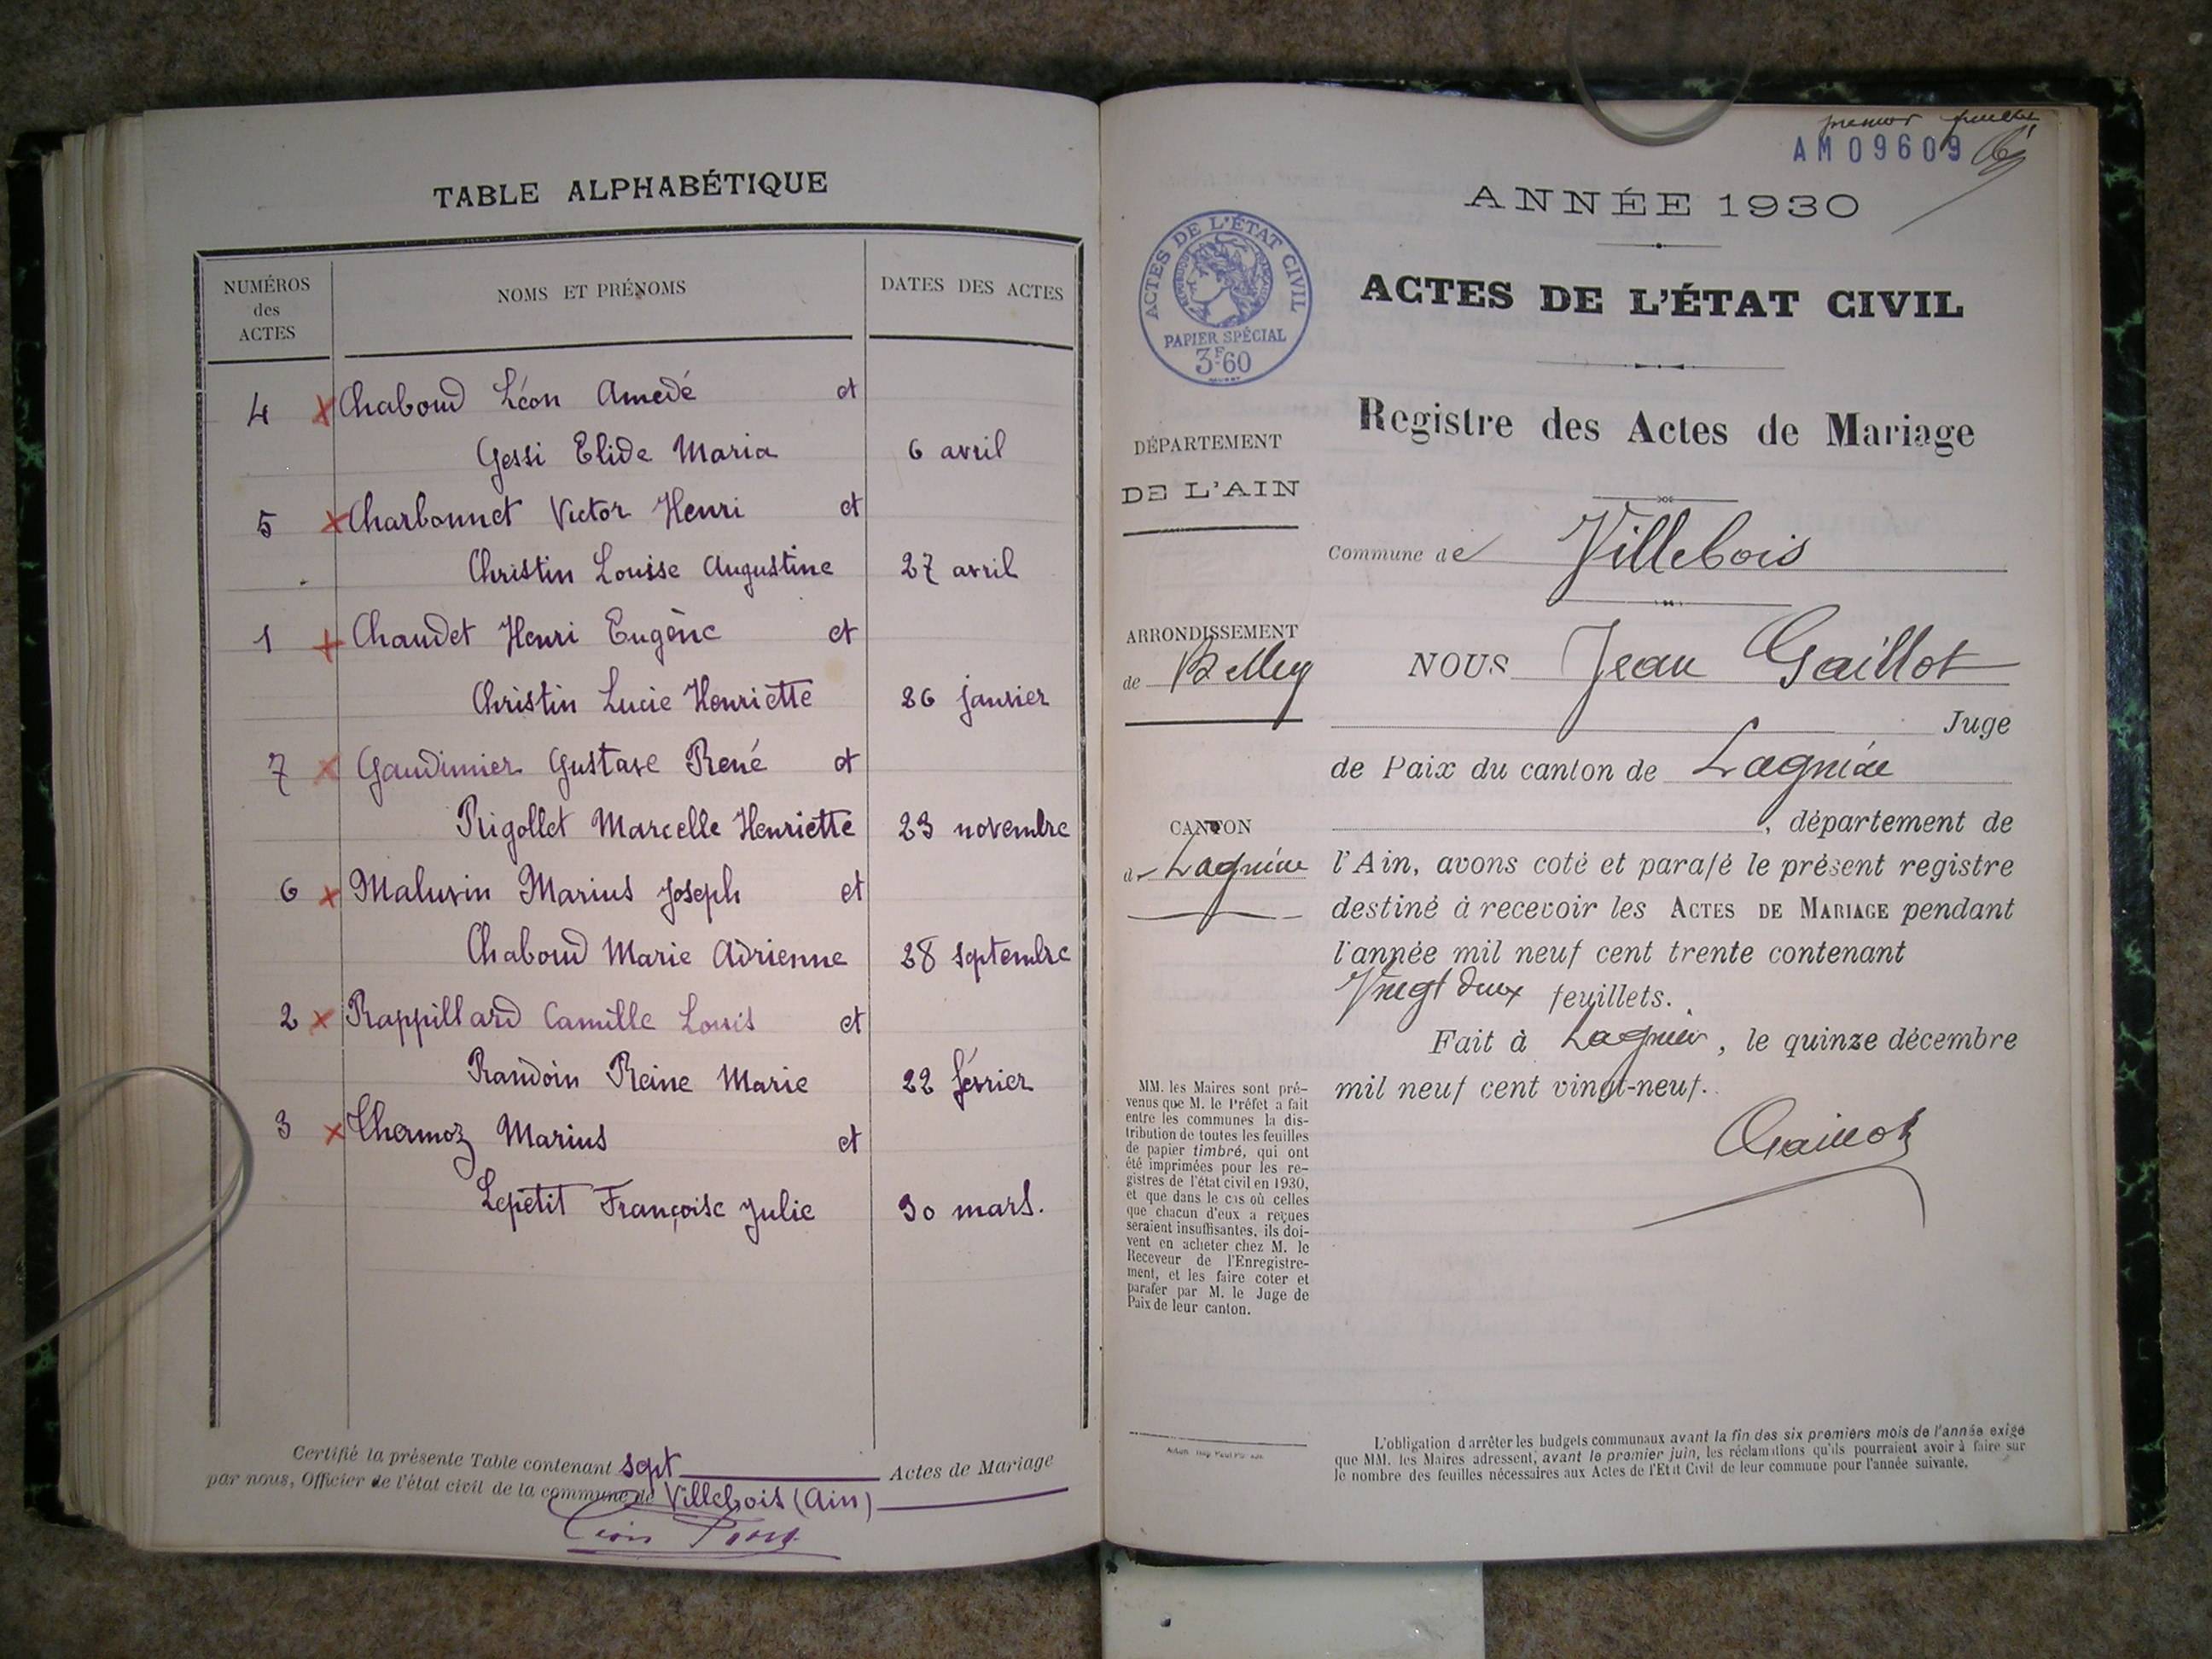 TABLE ALPHABÉTIQUE
NUMÉROS des ACTES
NOMS ET PRÉNOMS
DATES DES ACTES
4 Chaboud Léon Amedé et
Gessi Elide Maria 6 avril
5 Charbonnet Victor Henri et
Christin Louise Augustine 27 avril
1 Chaudet Henri Eugène et
Christin Lucie Henriette 26 janvier
7 Gaudimier Gustave René et
Rigollet Marcelle Henriette 23 novembre
6 Maluvin Marius Joseph et
Chaboud Marie Adrienne 28 septembre
2 Rappillard Camille Louis et
Randoin Reine Marie 22 février
3 Thermoz Marius et
Lepetit Françoise Julie 30 mars.
Certifié la présente Table contenant sept Actes de Mariage
par nous, Officier de l'état civil de la commune de Villebois (Ain)
premier feuillet
AM09609
ANNÉE 1930
ACTES DE L'ÉTAT CIVIL
RÉPUBLIQUE FRANÇAISE
PAPIER SPÉCIAL
3F60
ACTES DE L'ÉTAT CIVIL
Registre des Actes de Mariage
DÉPARTEMENT
DE L'AIN
Commune de Villebois
ARRONDISSEMENT
de Belley
CANTON
de Lagnieu
NOUS Jean Gaillot
Juge
de Paix du canton de Lagnieu
, département de
l'Ain, avons coté et parafé le présent registre
destiné à recevoir les ACTES DE MARIAGE pendant
l'année mil neuf cent trente contenant
Vingt deux feuillets.
Fait à Lagnieu, le quinze décembre
mil neuf cent vingt-neuf.
Gaillot
MM. les Maires sont pré-
venus que M. le Préfet a fait
entre les communes la dis-
tribution de toutes les feuilles
de papier timbré, qui ont
été imprimées pour les re-
gistres de l'état civil en 1930,
et que dans le cas où celles
que chacun d'eux a reçues
seraient insuffisantes, ils doi-
vent en acheter chez M. le
Receveur de l'Enregistre-
ment, et les faire coter et
parafer par M. le Juge de
Paix de leur canton.
L'obligation d'arrêter les budgets communaux avant la fin des six premiers mois de l'année exige
que MM. les Maires adressent, avant le premier juin, les réclamations qu'ils pourraient avoir à faire sur
le nombre des feuilles nécessaires aux Actes de l'Etat Civil de leur commune pour l'année suivante.